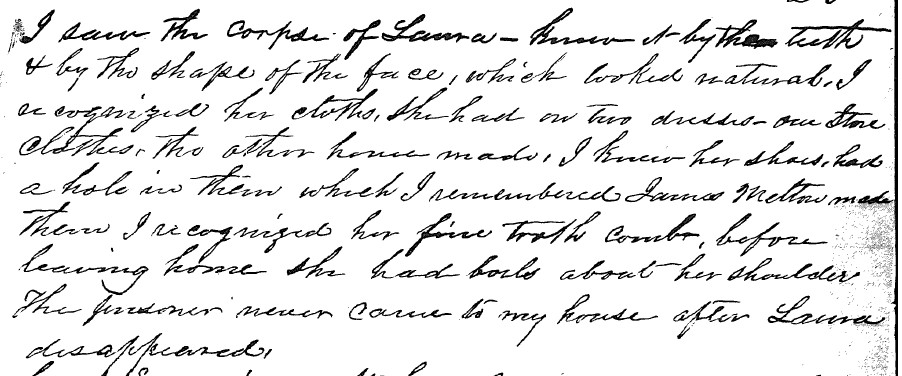 I saw the corpse of Laura – knew it by the teeth
& by the shape of the face, which looked natural. I
recognized her cloths, She had on two dresses – one Store
clothes, the other house made, I knew her shoes, had
a hole in them which I remembered James Melton made
them I recognized her fine tooth comb, before
leaving home she had boils about her shoulder
The prisoner never came to my house after Laura
disappeared,